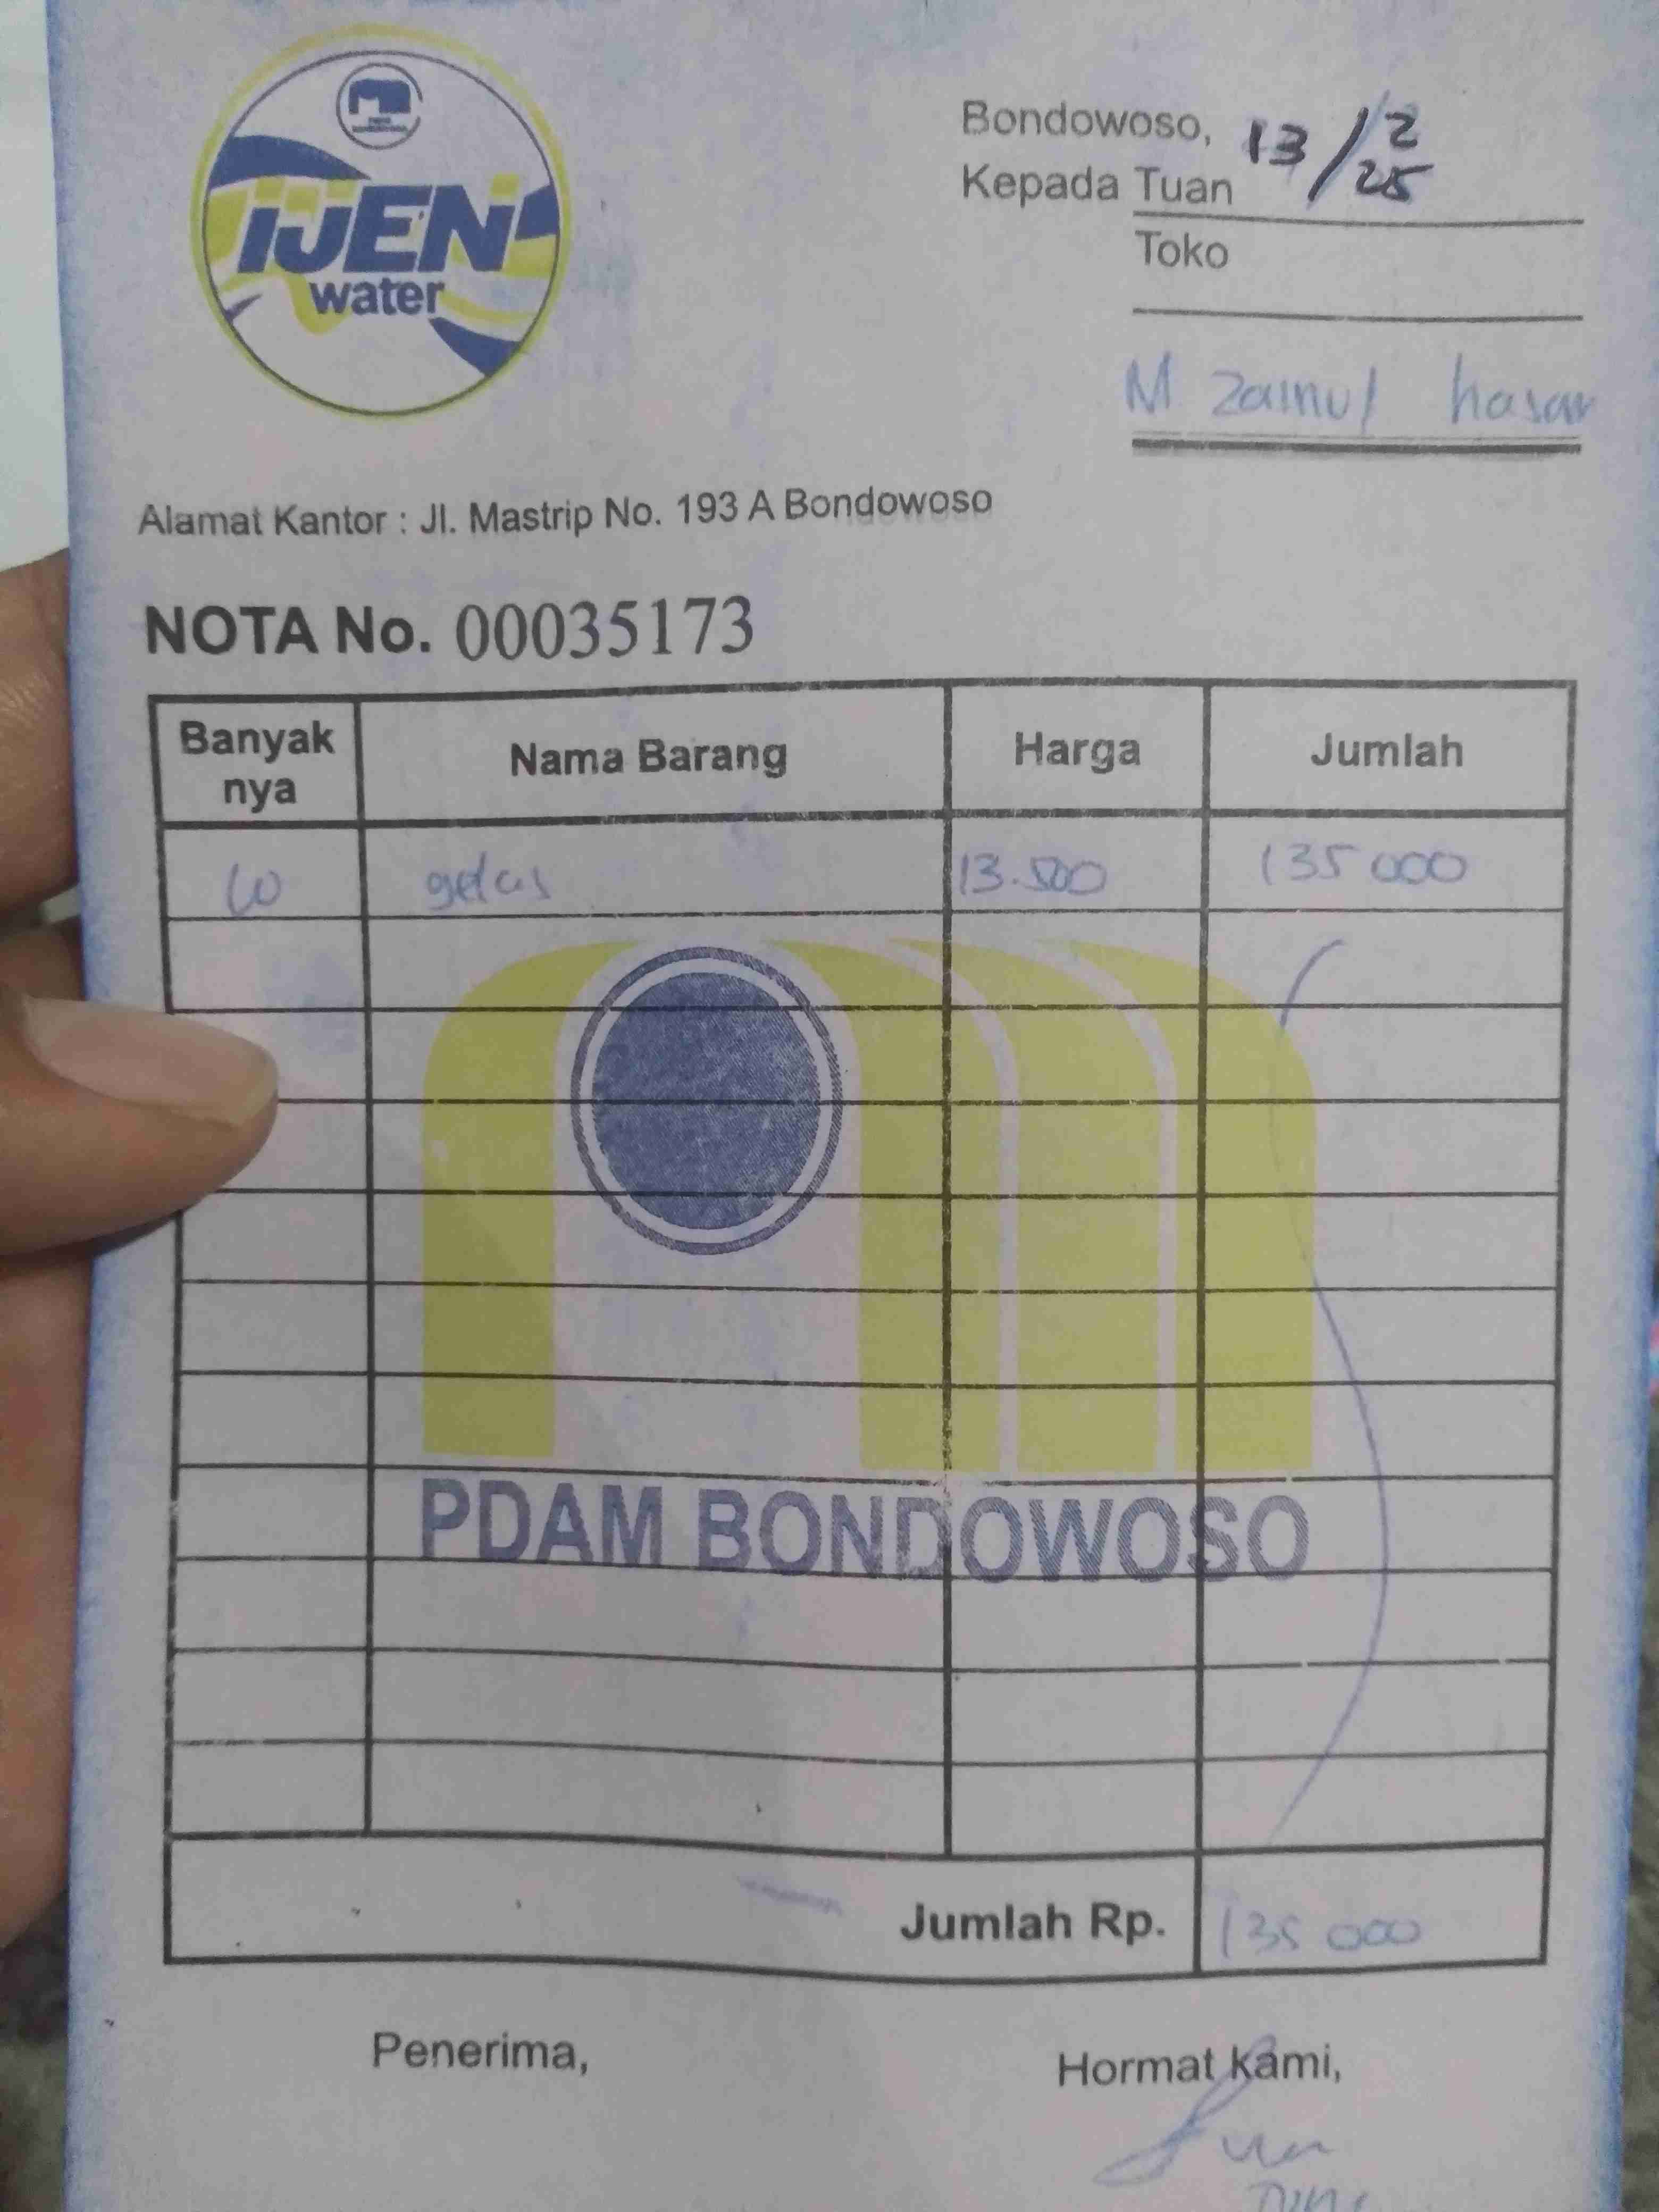 IJEN
water
Bondowoso, 13/2 25
Kepada Tuan
Toko
M Zainul hasan
Alamat Kantor : Jl. Mastrip No. 193 A Bondowoso
NOTA No. 00035173
Banyak nya Nama Barang Harga Jumlah
10 gelas 13.500 135 000
PDAM BONDOWOSO
Jumlah Rp. 135 000
Penerima,
Hormat kami,